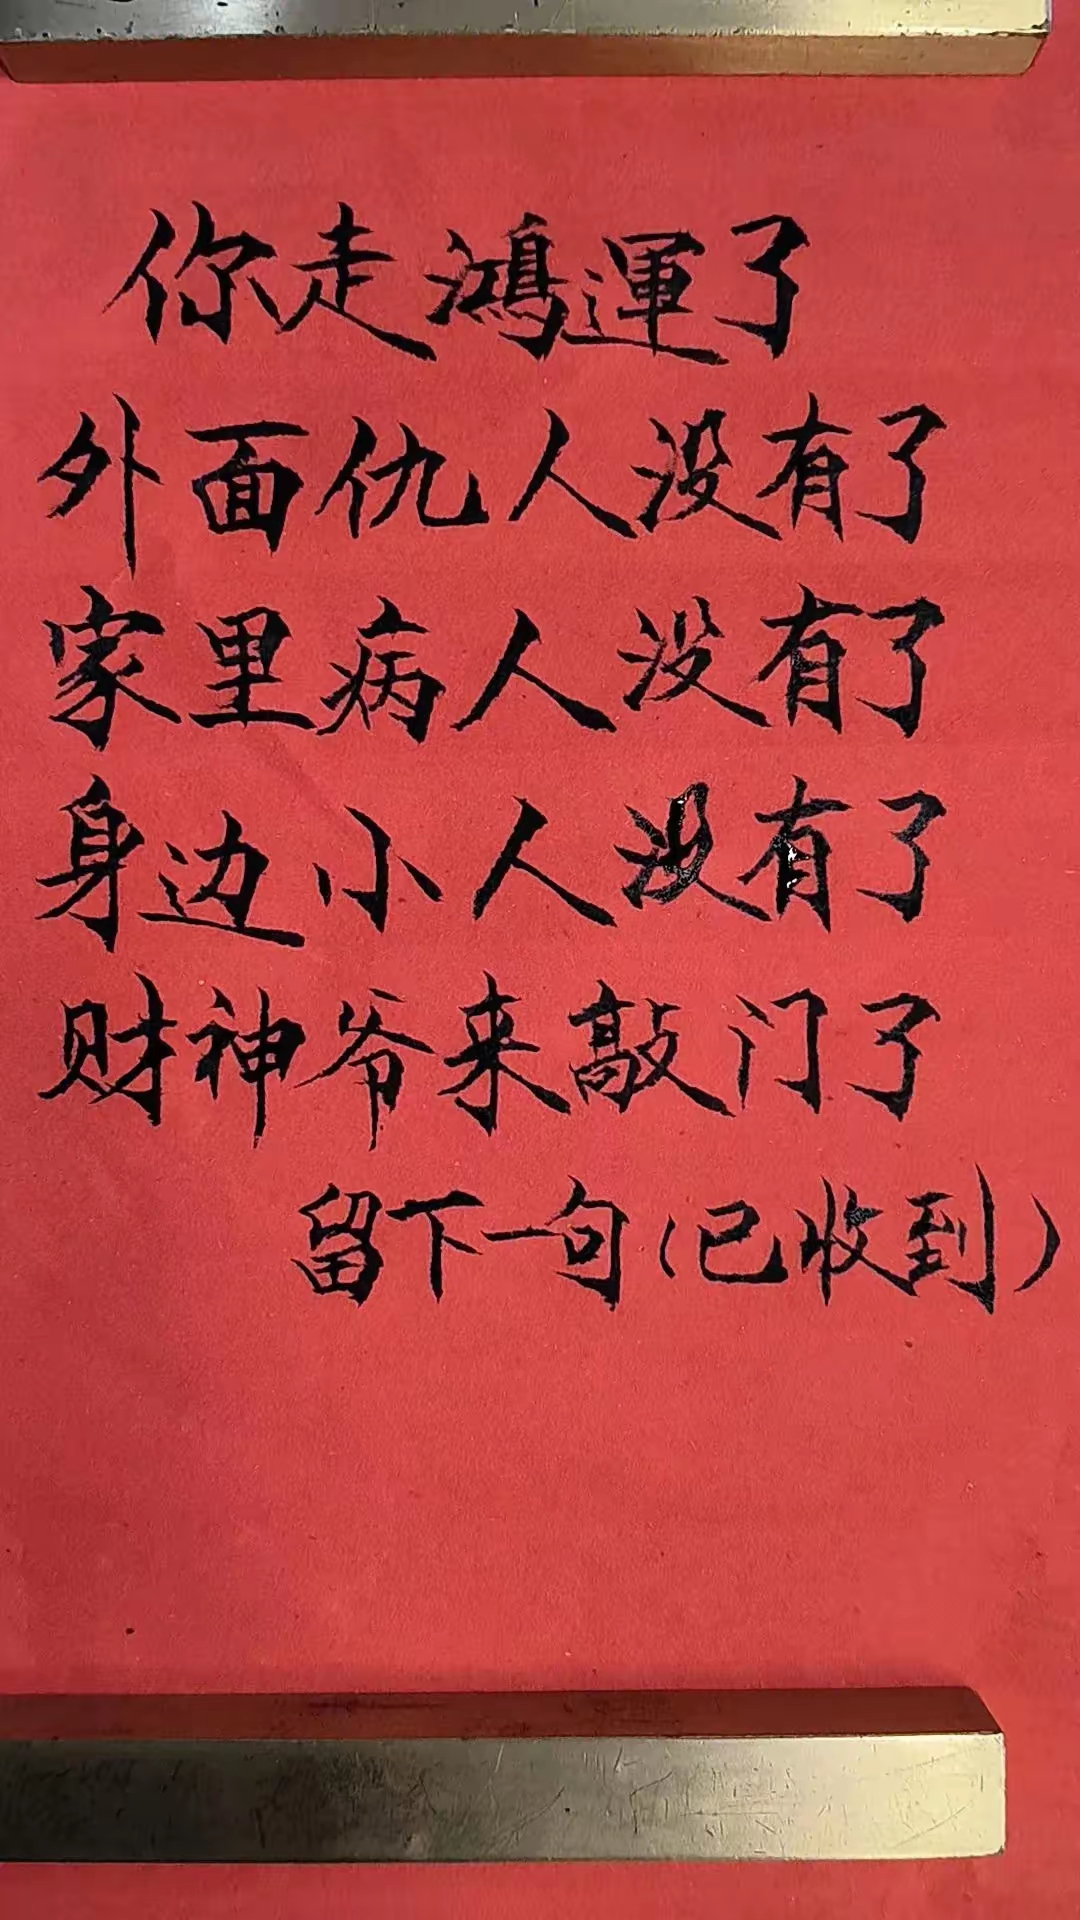 你走鴻運了
外面仇人没有了
家里病人没有了
身边小人没有了
财神爷来敲门了
留下一句(已收到)